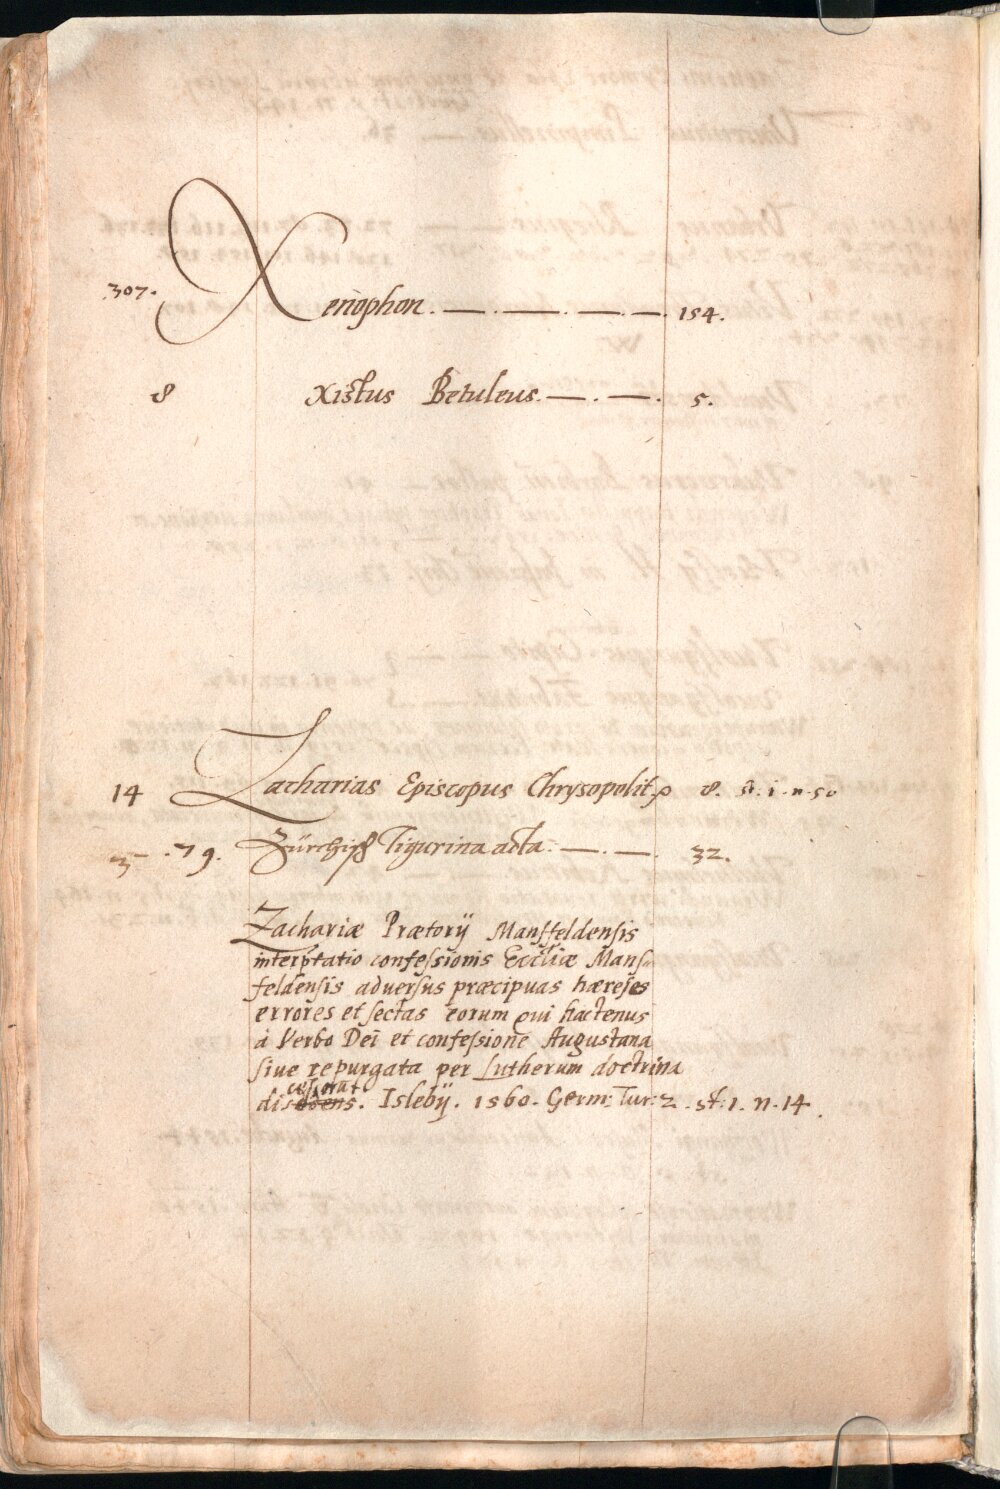 307. Xenophon. — . — . — . — . 154.
8 Xistus Betuleus. — . — . 5.
14 Zacharias Episcopus Chrysopolit. 8. st. i. n. 50
3 . 79. Zürchisch Tigurina acta. — . — . 32.
Zachariæ Prætorij Mansfeldensis
interptatio confessionis Eccliæ Mans-
feldensis adversus præcipuas hæreses
errores et sectas eorum qui hactenus
à Verbo Dei et confessione Augustana
sive repurgata per Lutherum doctrina
discesserat. Islebij. 1560. Germ: Tur: 2. st. 1. n. 14.